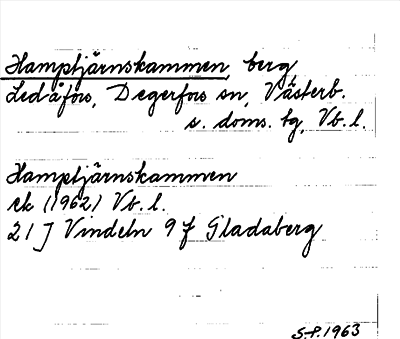 Hamptjärnskammen, berg
Ledåfors, Degerfors sn, Västerb.
s. doms. tg, Vb. l.
Hamptjärnskammen
ek (1962) Vb. l.
21 J Vindeln 9 f Gladaberg
S.P. 1963